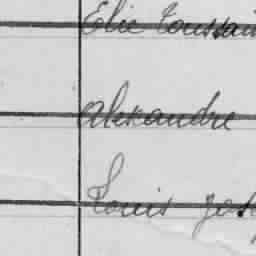 Elie Toussain
Alexandre
Louis Jos